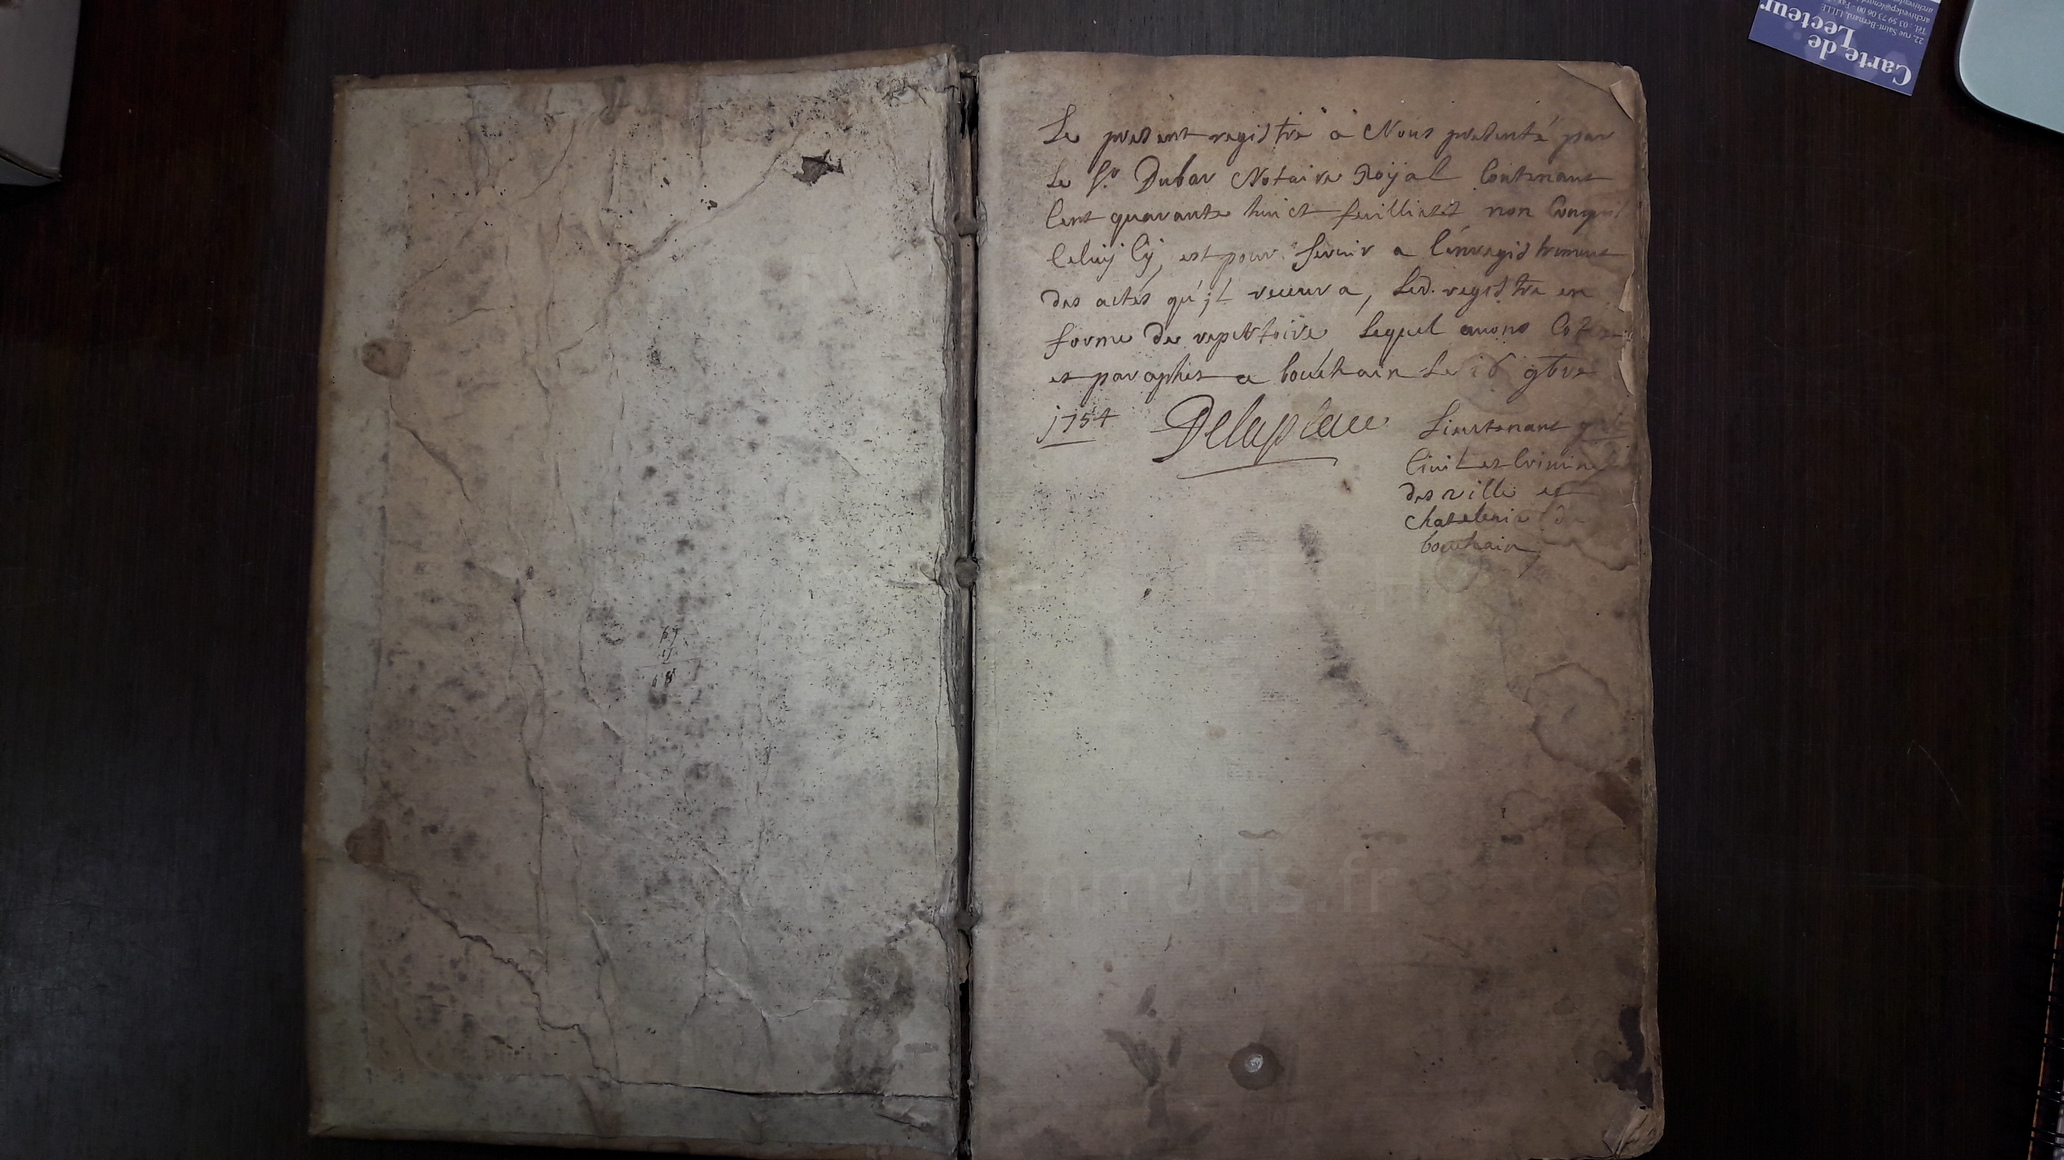 Le present registre à Nous presenté par
le Sr Dubar Notaire Royal Contenant
Cent quarante huict feuilliets non Compris
Celuij Cij, est pour servir a l'enregistrement
des actes qu'jl receura, led. registre en
forme de repertoire lequel auons Cotté
et paraphet a bouchain le 16 9bre
1754 Delaplace Lieutenant gnal
Ciuil et Criminel
des ville et
chatelenie de
bouchain
68
Carte de
Lecteur
22, rue Saint-Bernard, LILLE
Tél. : 03 59 73 06 00 - Fax
www. mmatis.fr